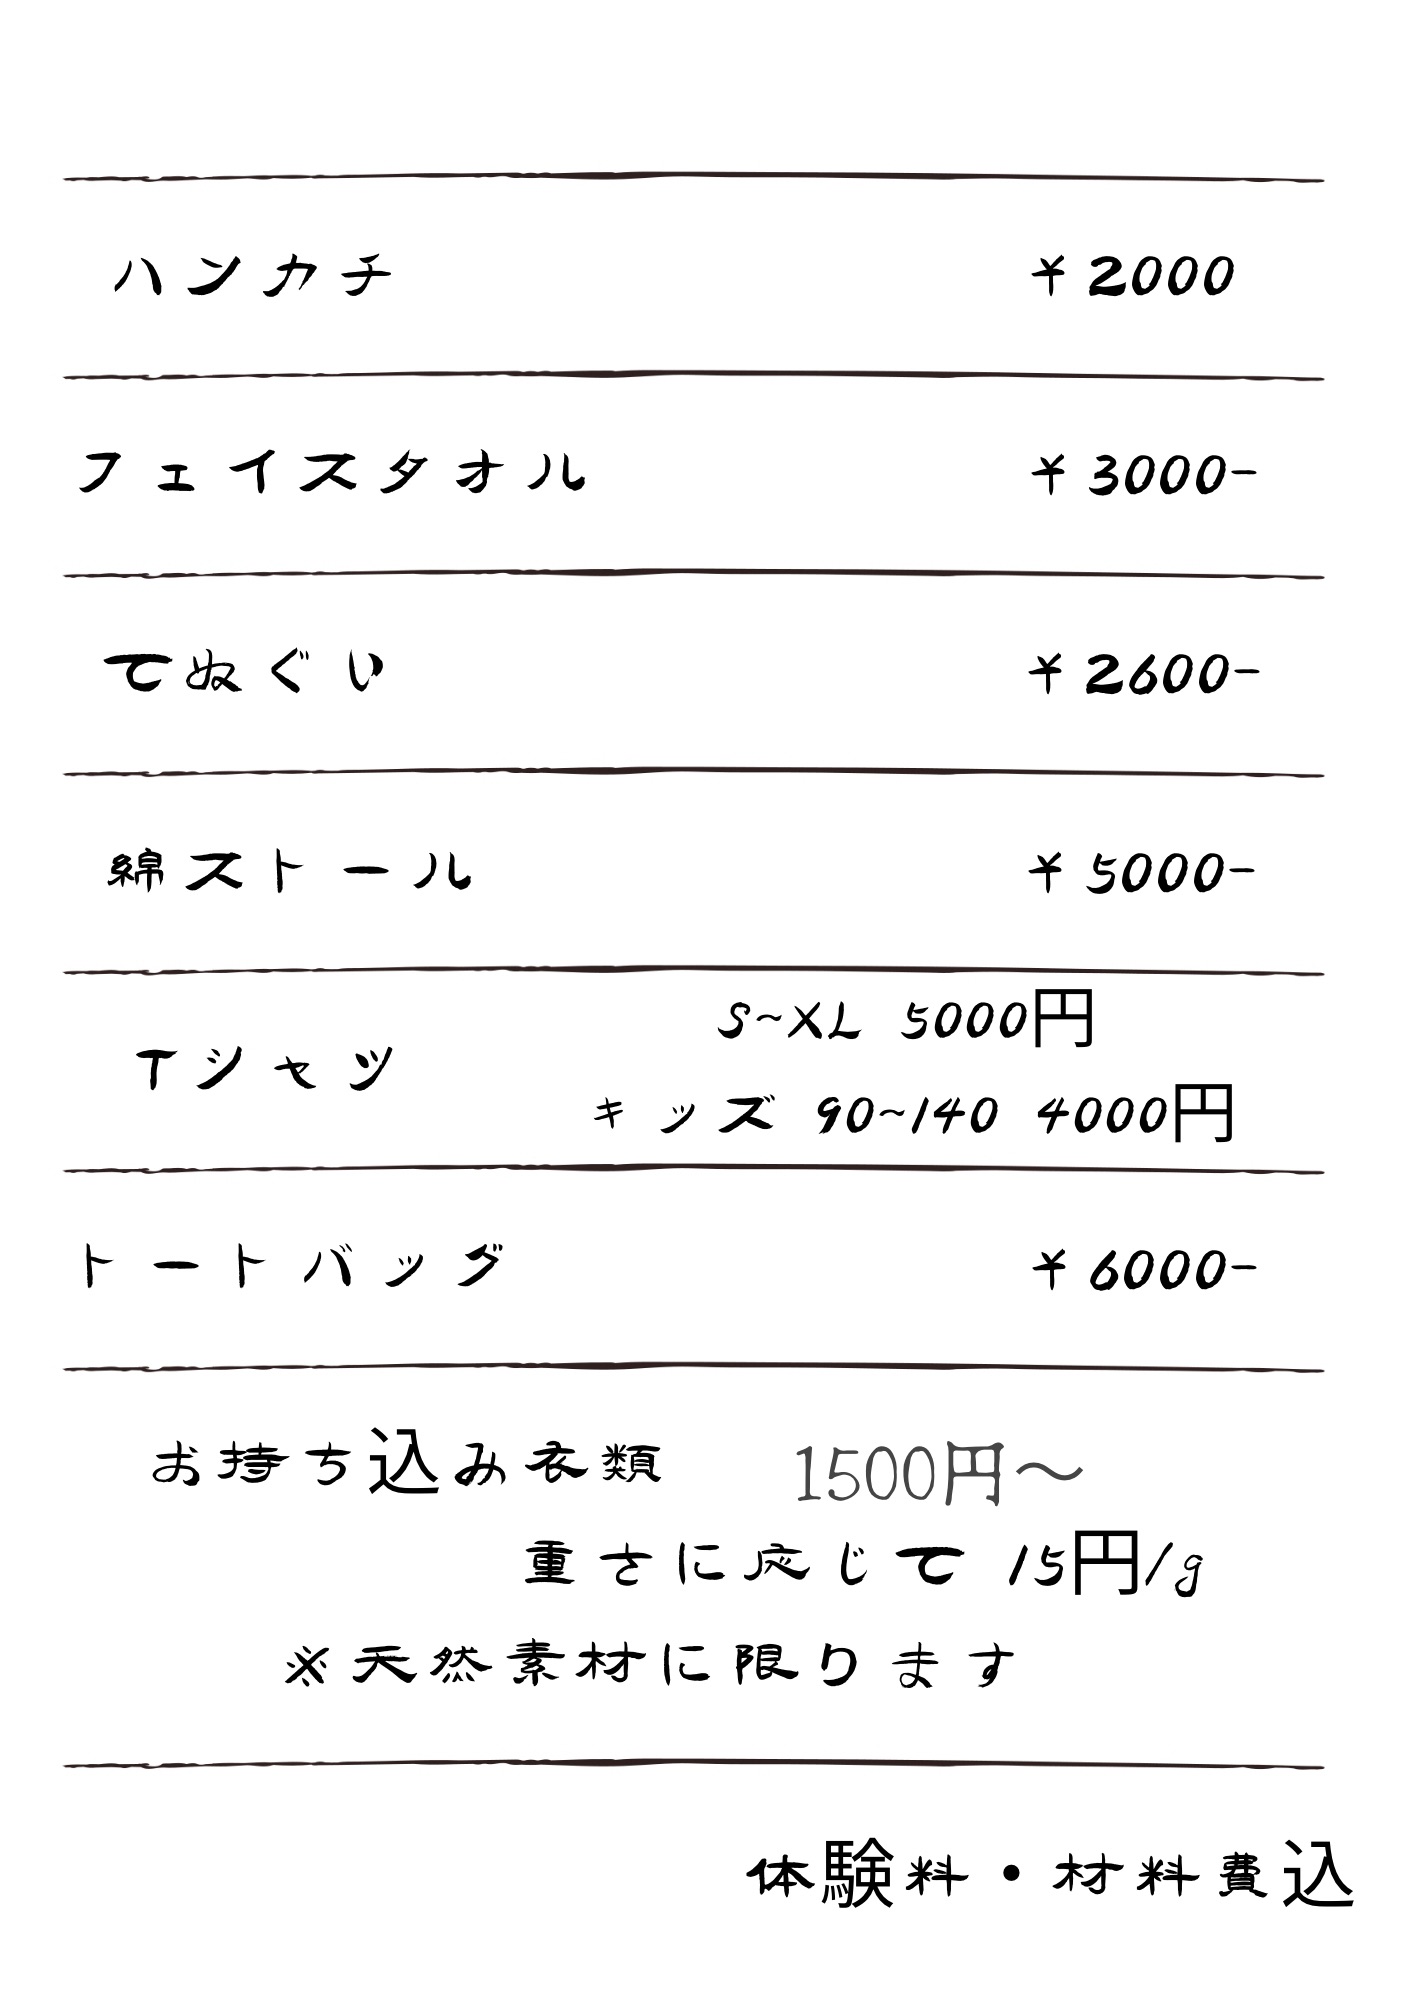 ハンカチ ¥2000
フェイスタオル ¥3000-
てぬぐい ¥2600-
綿ストール ¥5000-
S~XL 5000円
Tシャツ
キッズ 90~140 4000円
トートバッグ ¥6000-
お持ち込み衣類 1500円～
重さに応じて 15円/g
※天然素材に限ります
体験料・材料費込